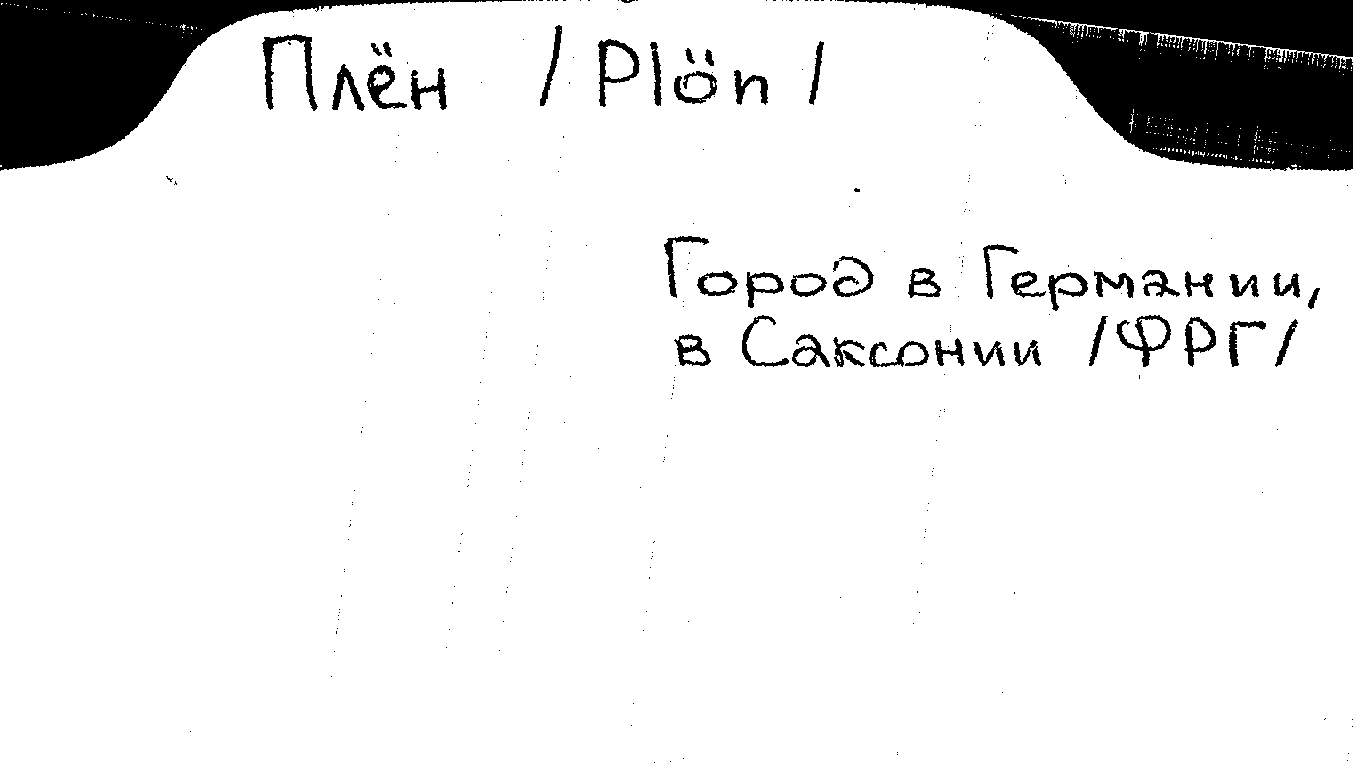 Плён /Plön/
Город в Германии,
в Саксонии /ФРГ/